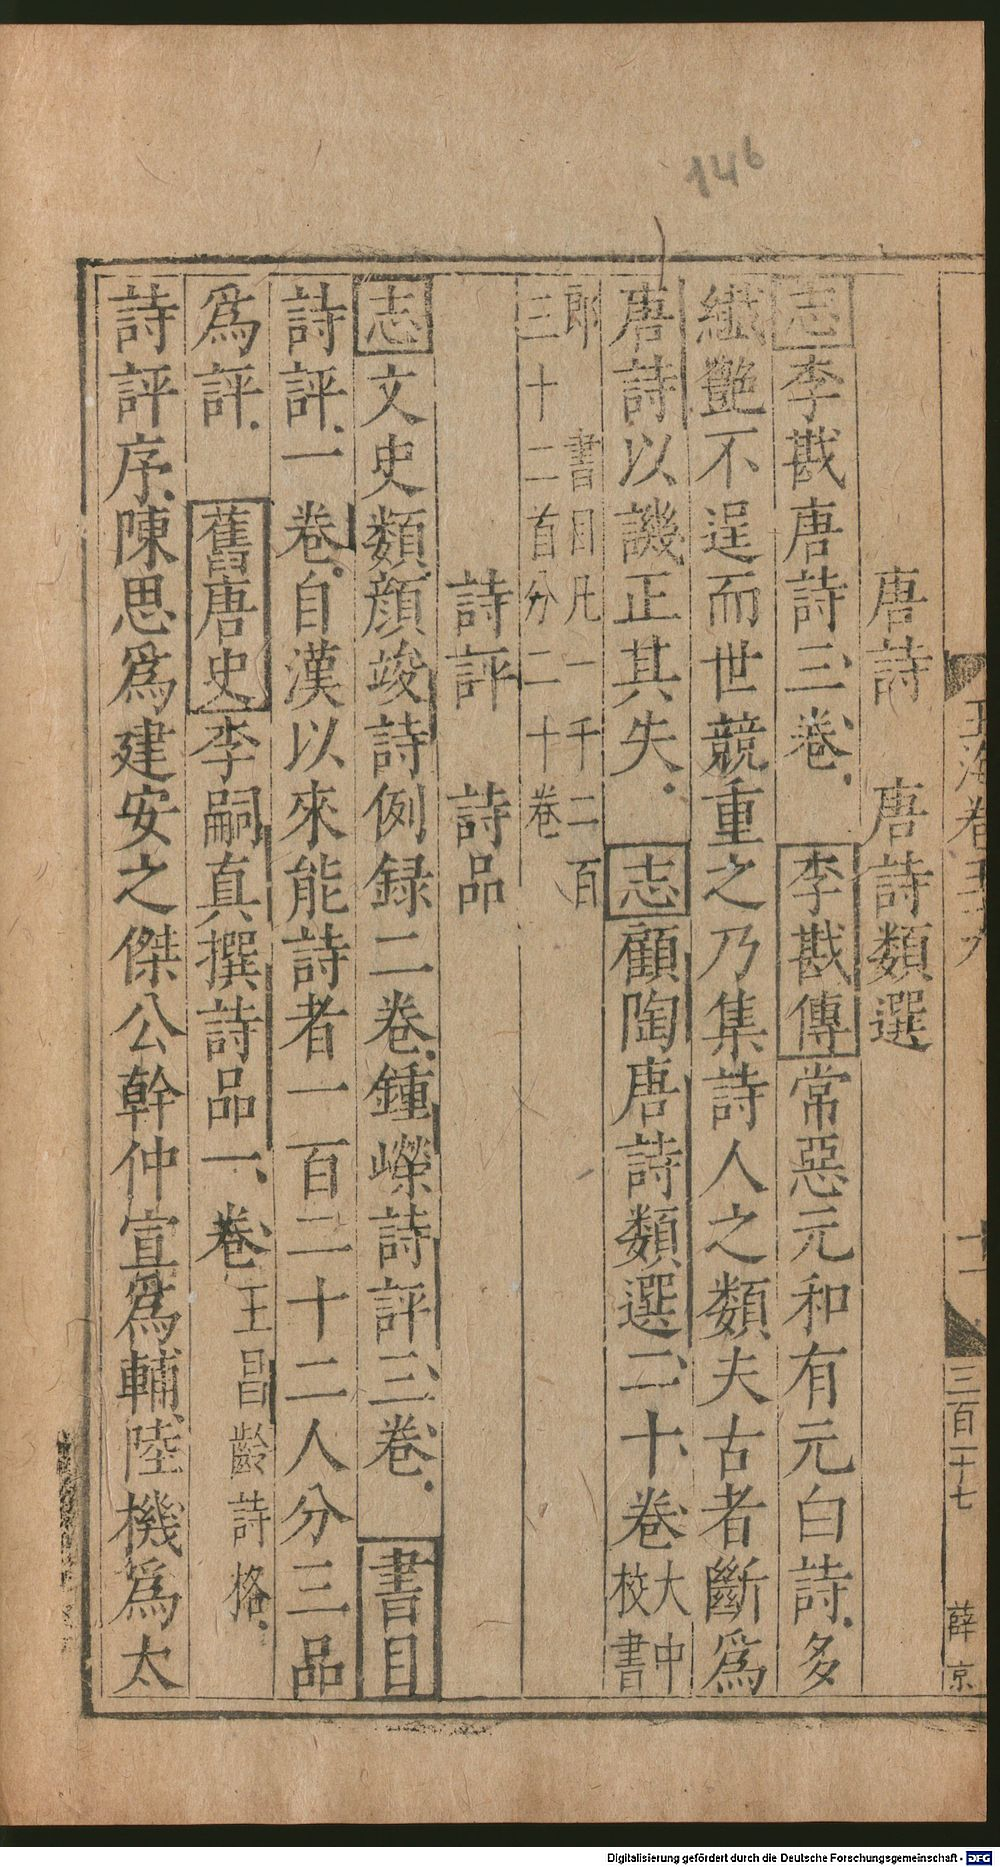 146
玉海卷五十九
十一
三百二十七
薛京
唐詩　唐詩類選
志李戡唐詩三卷李戡傳常惡元和有元白詩多
纖艶不逞而世競重之乃集詩人之類夫古者斷爲
唐詩以譏正其失志顧陶唐詩類選二十卷大中校書
郎　書目凡一千二百
三十二首分二十卷
詩評　詩品
志文史類顔竣詩例録二卷鍾嶸詩評三卷書目
詩評一卷自漢以來能詩者一百二十二人分三品
爲評　舊唐史李嗣真撰詩品一卷王昌齡詩格
詩評序陳思爲建安之傑公幹仲宣爲輔陸機爲太
Digitalisierung gefördert durch die Deutsche Forschungsgemeinschaft - DFG